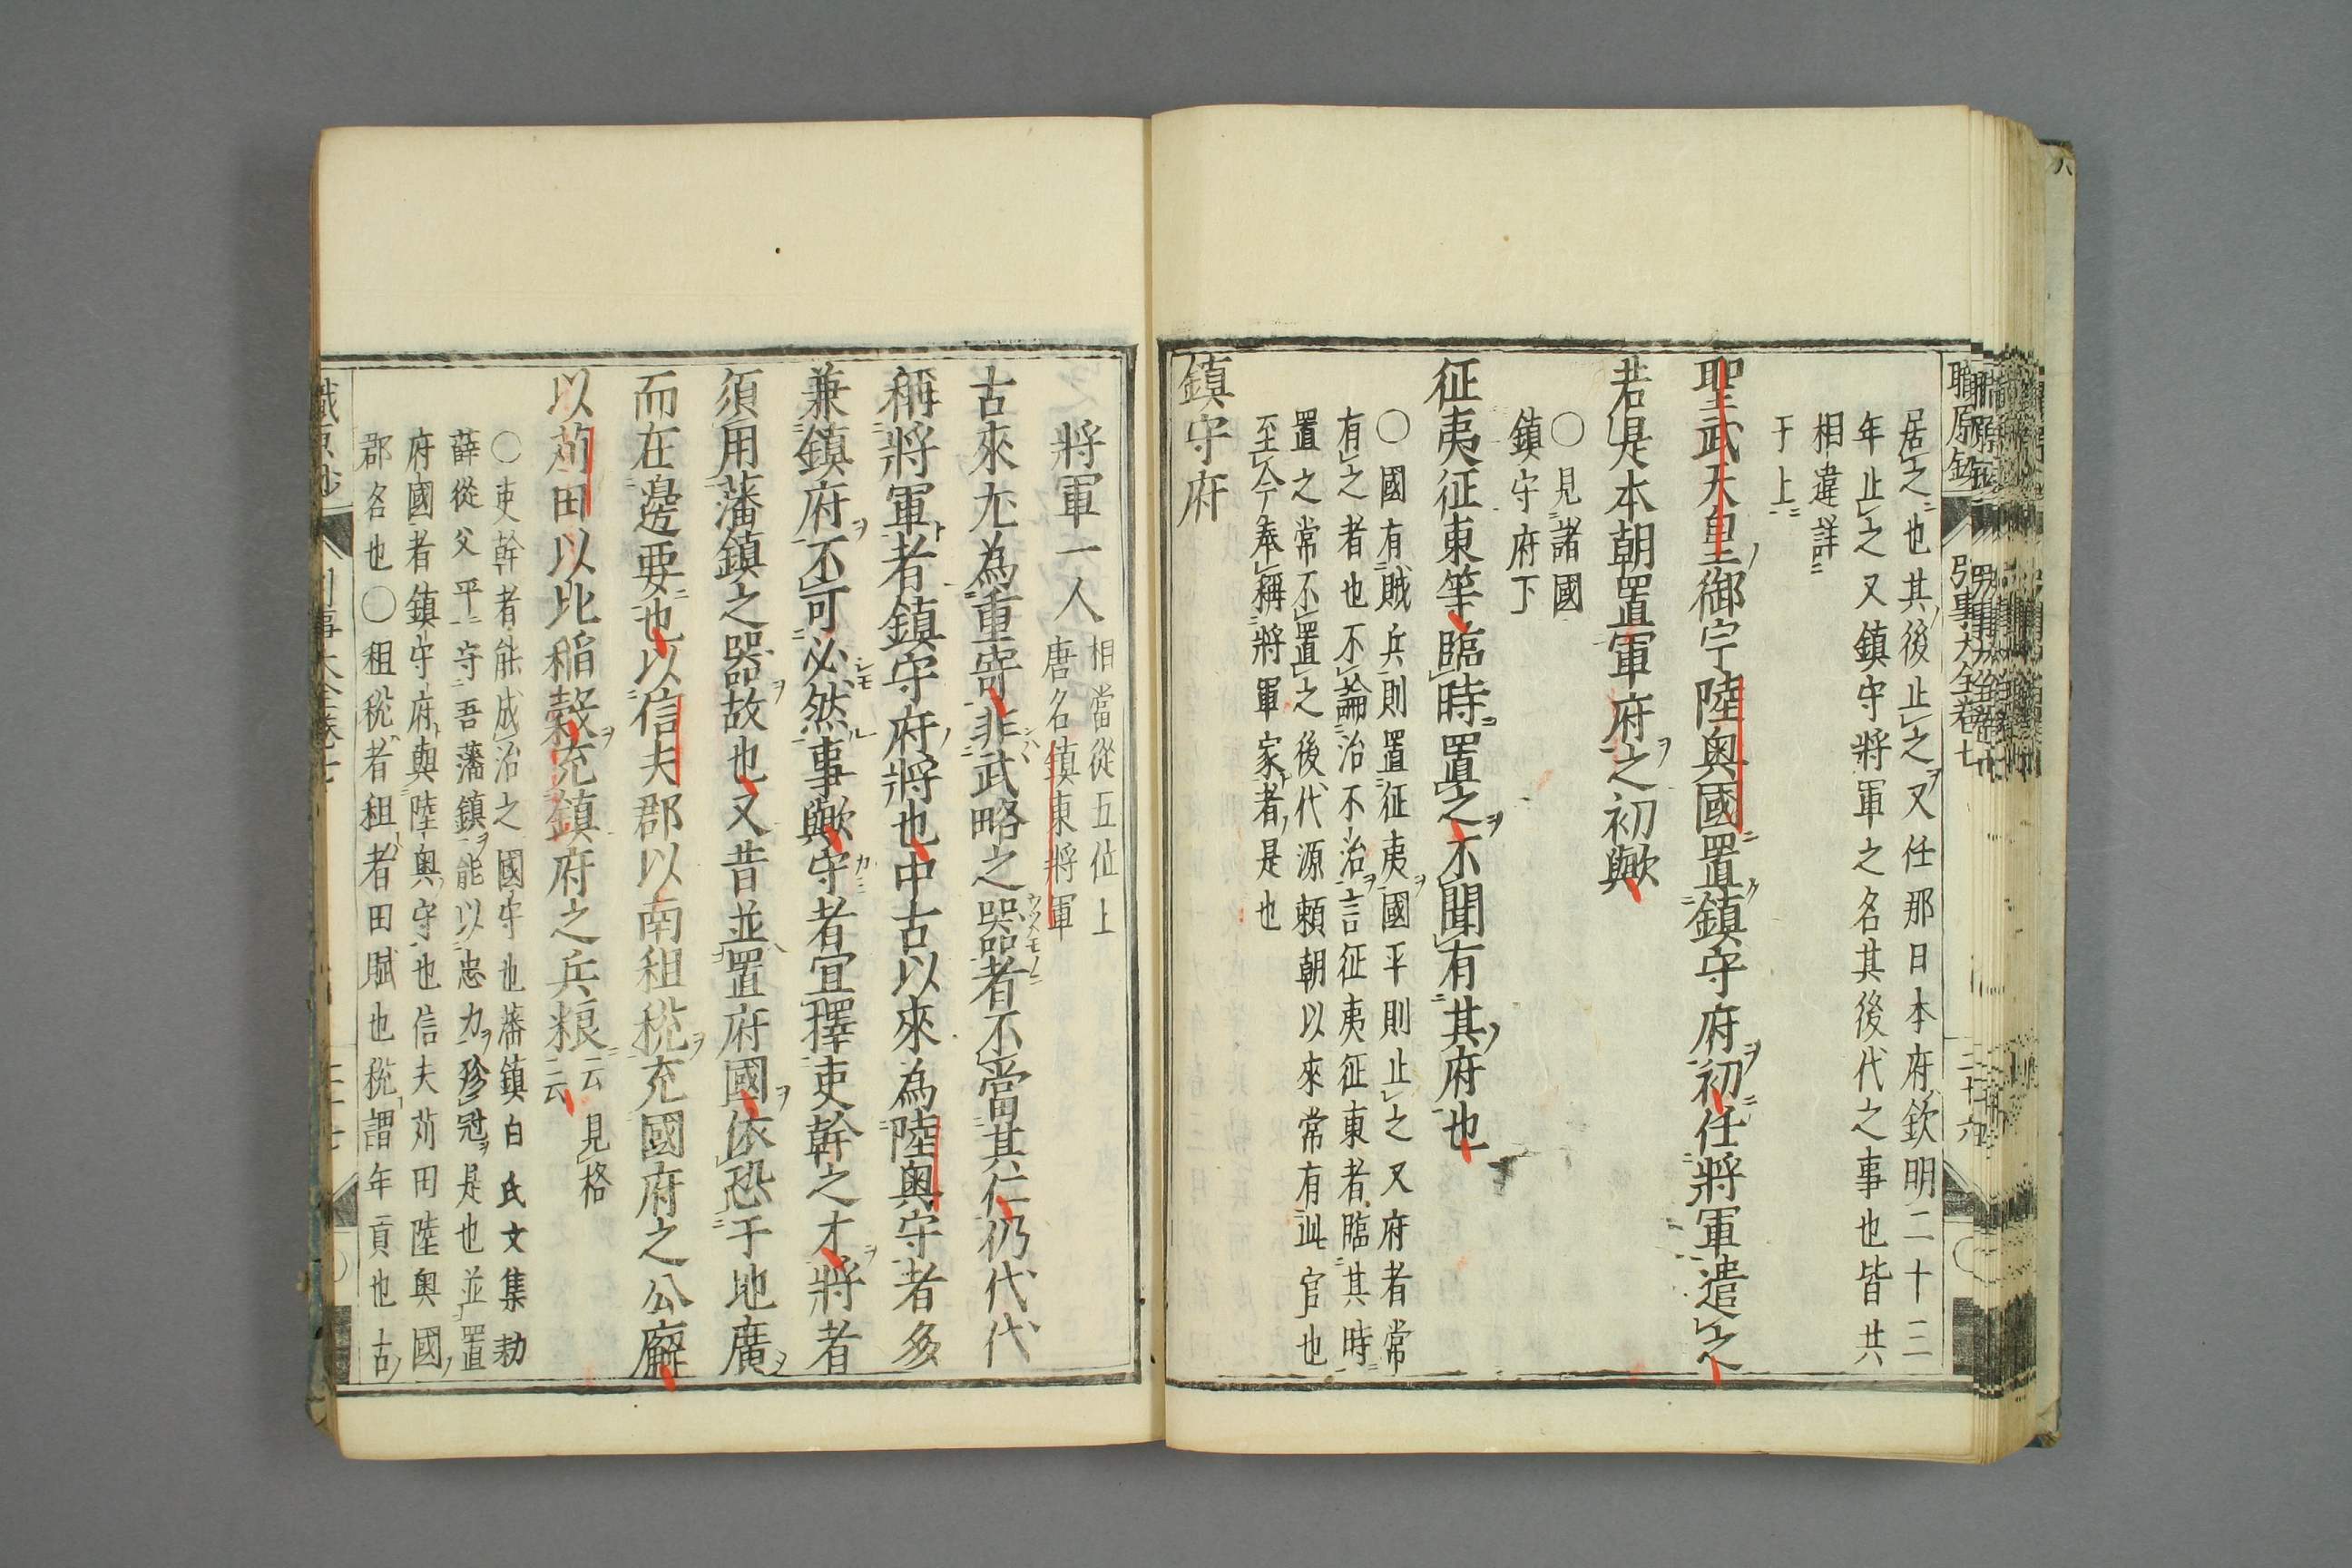 職原鈔 引事大全卷七 二十六
居之也其後止之又任那日本府欽明二十三
年止之又鎮守將軍之名其後代之事也皆共
相違詳
于上
聖武天皇御宇陸奧國置鎮守府初任將軍遣之
若是本朝置軍府之初歟
○見諸國
鎮守府下
征夷征東等臨時置之不聞有其府也
○國有賊兵則置征夷國平則止之又府者常
有之者也不論治不治言征夷征東者臨其時
置之常不置之後代源賴朝以來常有此官也
至今奉稱將軍家者是也
鎮守府
將軍一人
相當從五位上
唐名鎮東將軍
古來尤為重寄非武略之器者不當其仁仍代代
稱將軍者鎮守府將也中古以來為陸奧守者多
兼鎮府不可必然事歟守者宜擇吏幹之才將者
須用藩鎮之器故也又昔並置府國依恐于地廣
而在邊要也以信夫郡以南租稅充國府之公廨
以苅田以北稲穀充鎮府之兵粮云云見格
○吏幹者能成治之國守也藩鎮白氏文集勑
薛從父平守吾藩鎮能以忠力殄冦是也並置
府國者鎮守府與陸奧守也信夫苅田陸奧國
郡名也○租稅者租者田賦也稅謂年貢也古